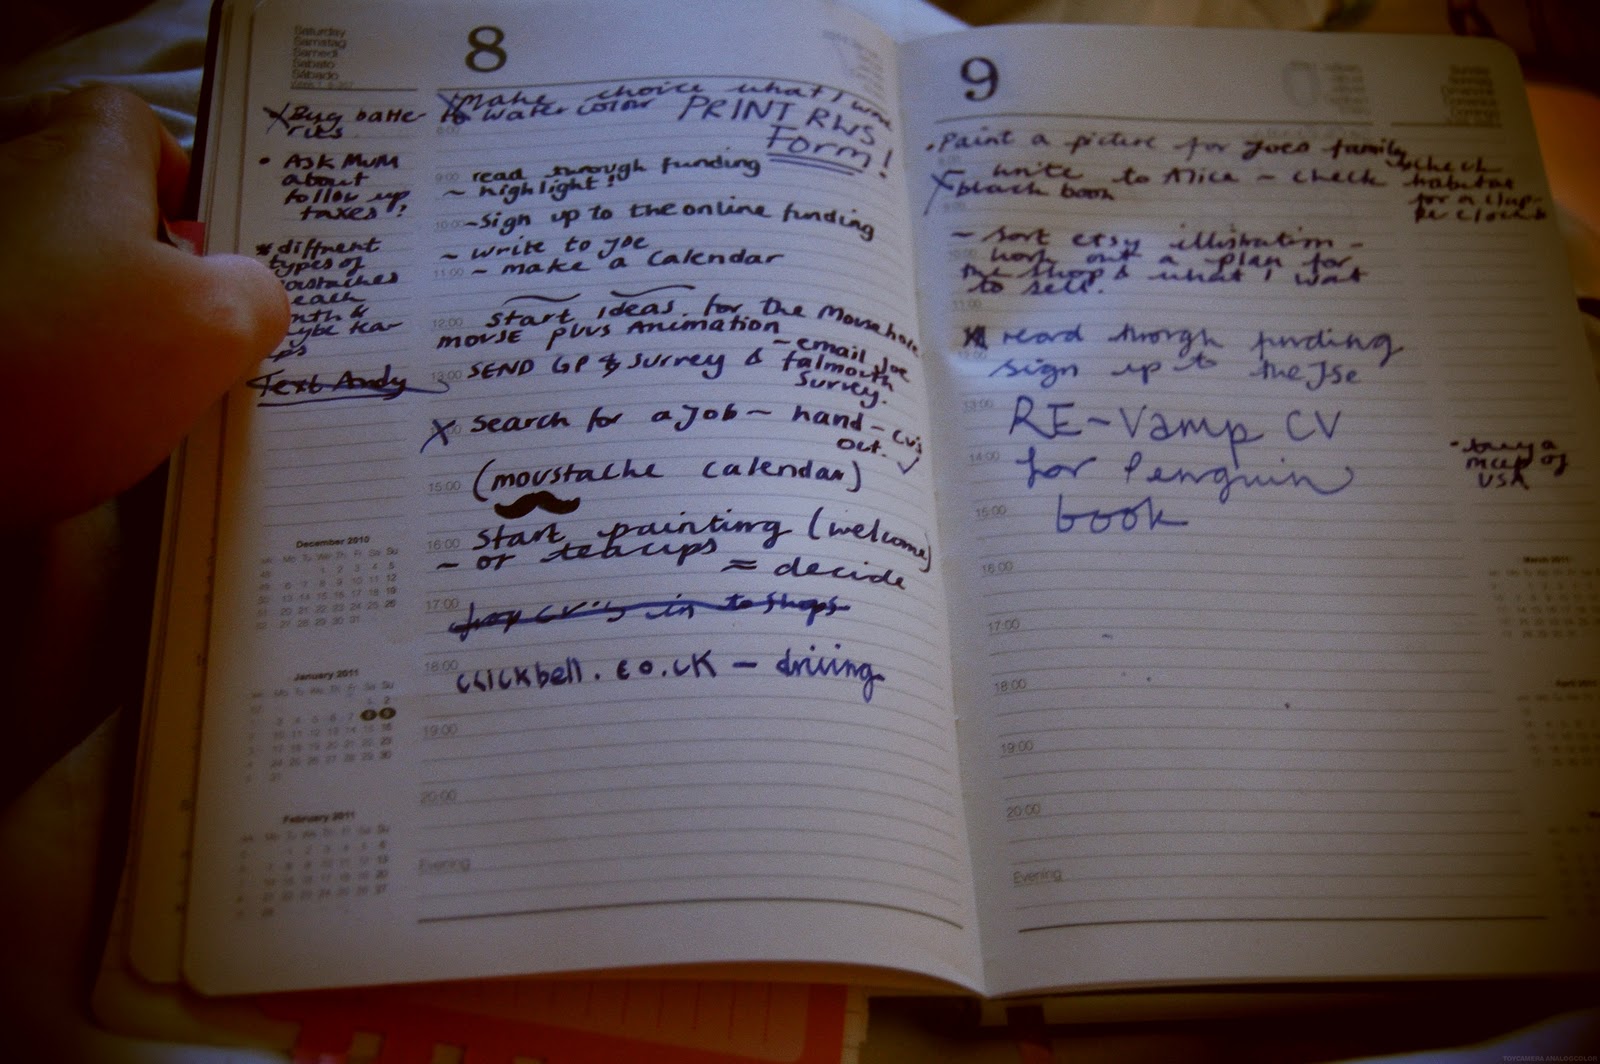 Saturday
Samstag
Samedi
Sabato
Sábado
8
X Buy batte-
ries
• Ask Mum
about
follow up
taxes?
* diffrent
types of
each
Text Andy
December 2010
January 2011
February 2011
X Make choice what I
to watercolour PRINT RWS
Form!
9:00 read through funding
~ highlight!
10:00 ~ Sign up to the online funding
~ write to Joe
11:00 ~ make a calendar
12:00 Start ideas for the Mousehole
mouse Animation
~ email Joe
13:00 SEND GP & Surrey & falmouth
Survey.
X Search for a job ~ hand - cv's
out.
15:00 (moustache calendar)
16:00 Start painting (welcome)
~ or teacups = decide
17:00 drop cv's in to shops
18:00 clickbell.co.uk - driving
19:00
20:00
Evening
9
• Paint a picture for Joes family
write to Alice ~ check habitat
X black book
~ sort etsy illustration -
work out a plan for
the shop & what I wat
to sell.
11:00
read through funding
sign up to the
13:00
RE-Vamp CV
14:00 for Penguin
15:00 book
- buy a
map of
USA
16:00
17:00
18:00
19:00
20:00
Evening
March 2011
April 2011
TOYCAMERA ANALOGCOLOR